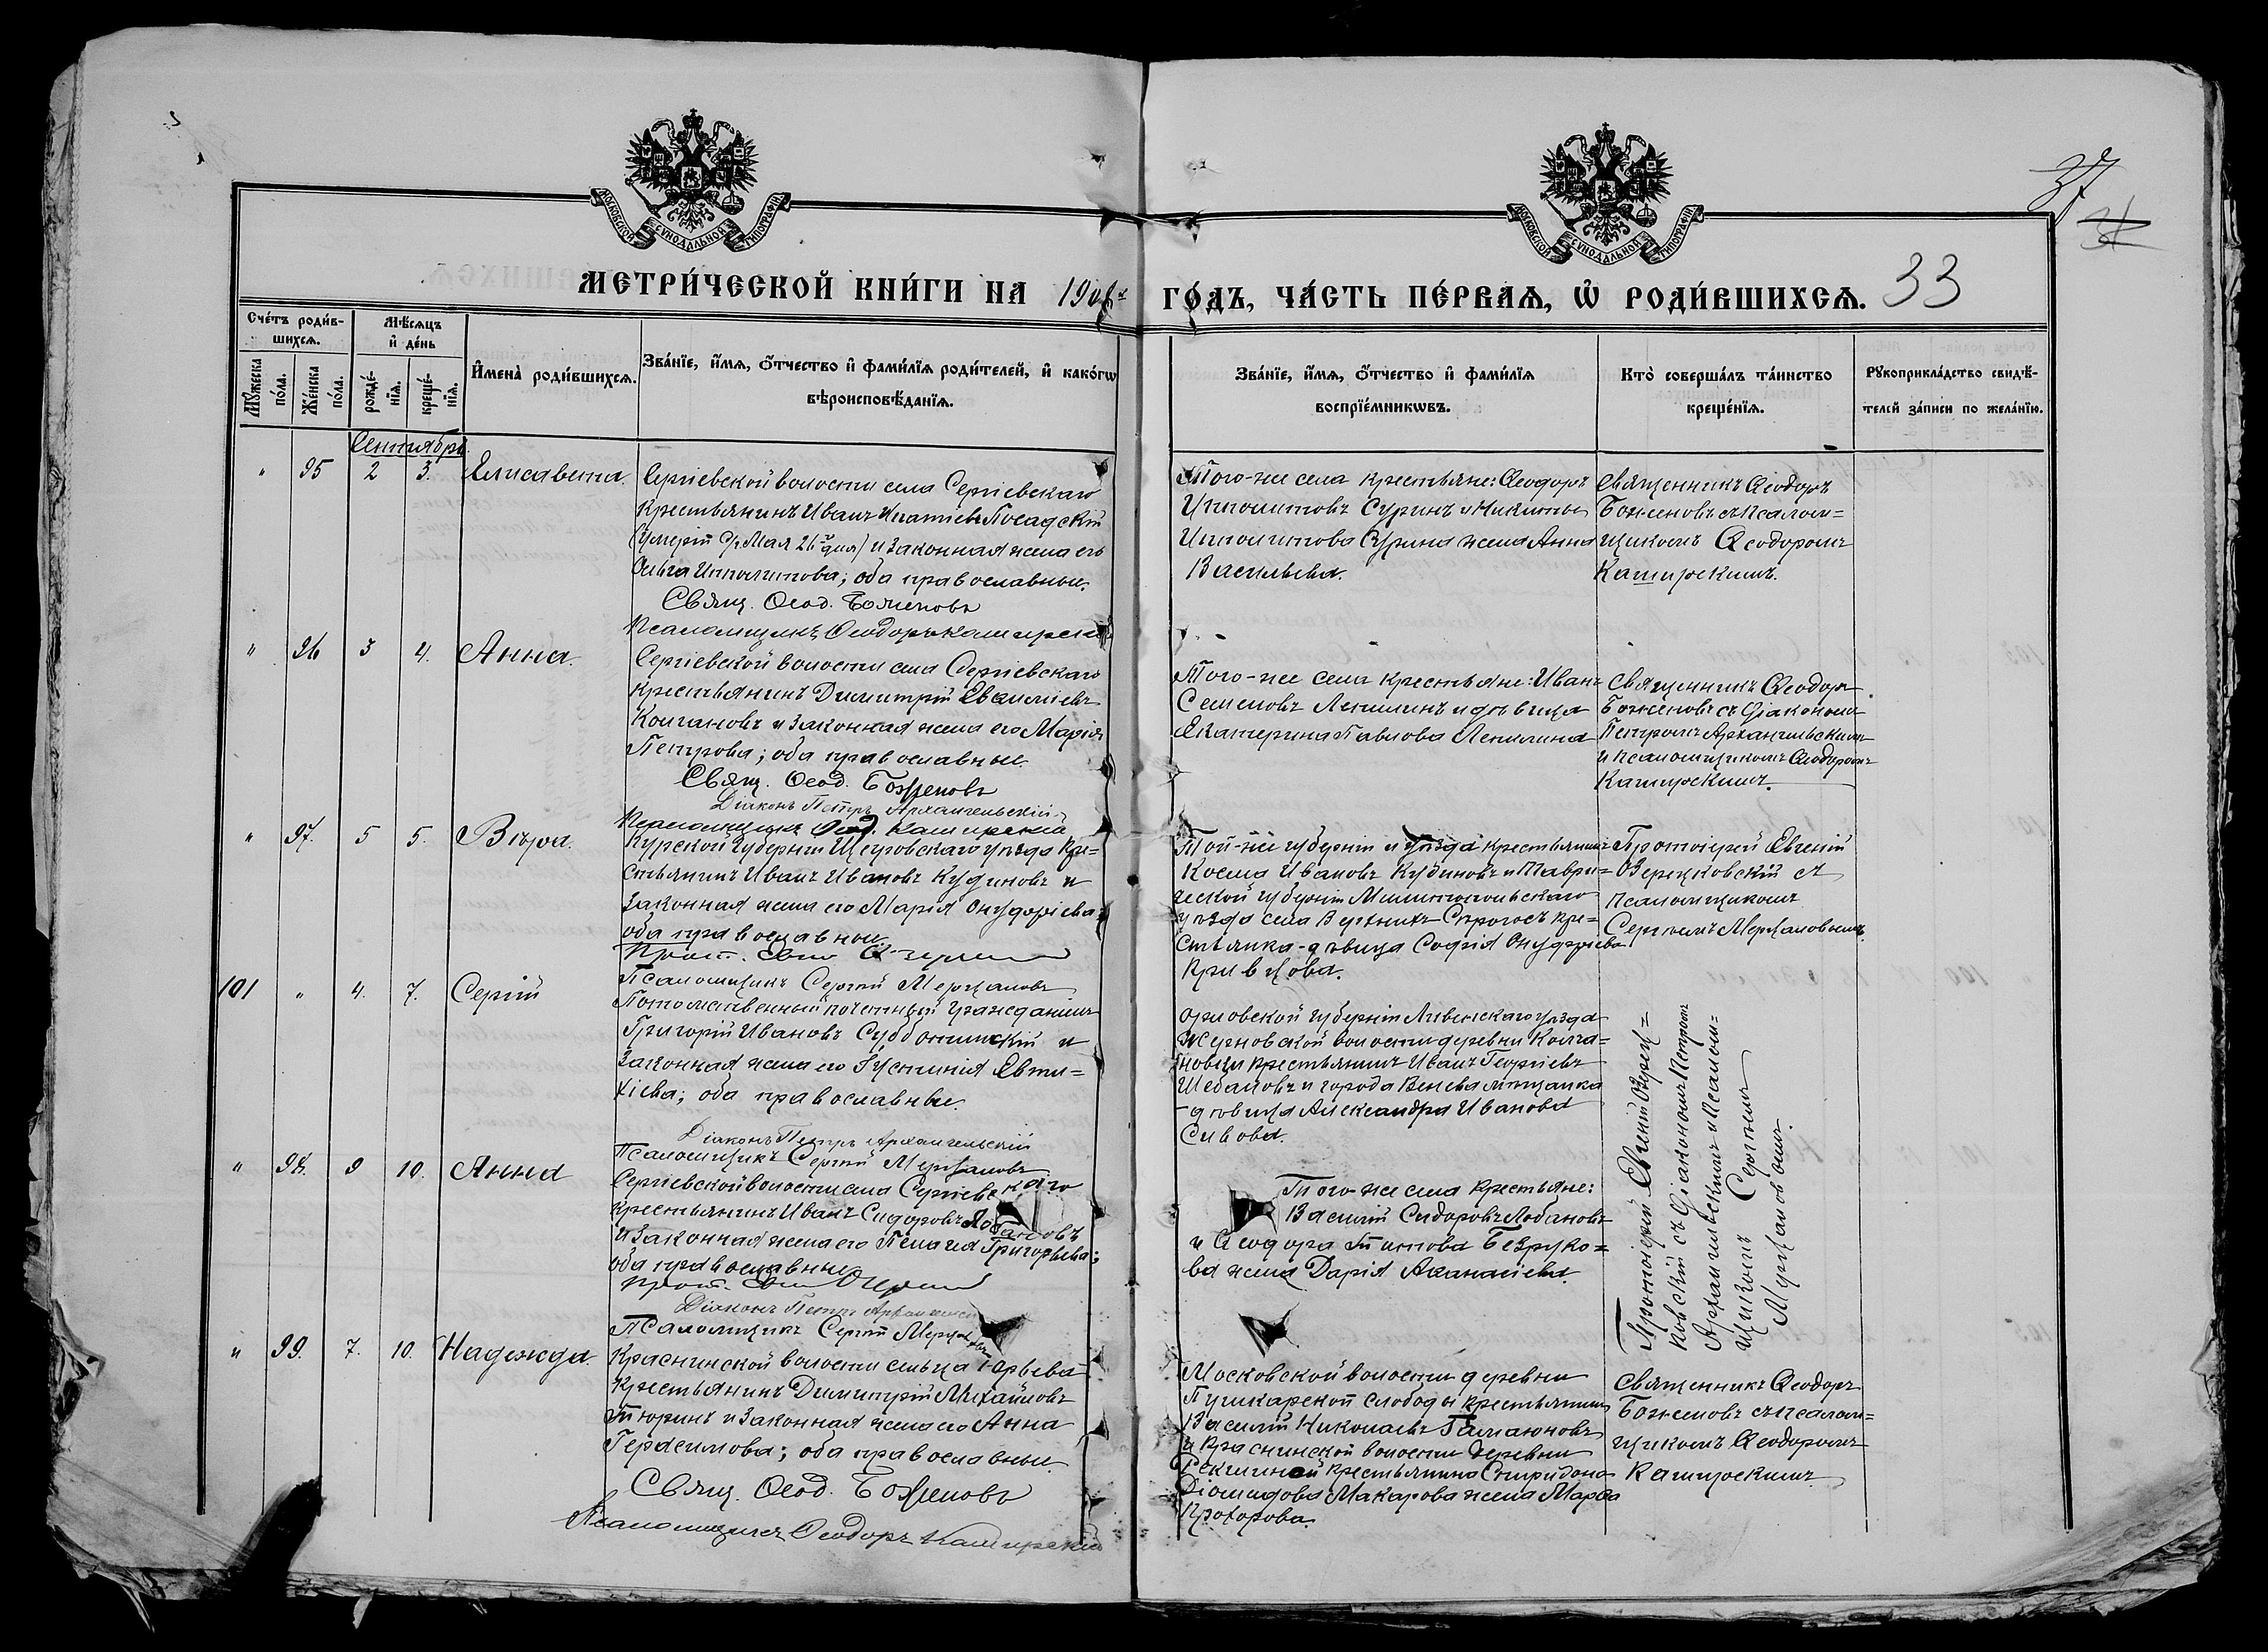 37
МОСКОВСКОЙ СУНОДАЛЬНОЙ ТИПОГРАФІИ
МОСКОВСКОЙ СУНОДАЛЬНОЙ ТИПОГРАФІИ
МЕТРИ́ЧЕСКОЙ КНИ́ГИ НА
ГО́ДЪ, ЧА́СТЬ ПЕ́РВАѦ, Ѡ҆ РОДИ́ВШИХСѦ. 33
Сче́тъ роди́в-
шихсѧ.
Мꙋ́жеска по́ла.
Же́нска по́ла.
Мѣ́сѧцъ
и҆ де́нь
рожде́-
нїѧ.
креще́-
нїѧ.
И҆мена̀ роди́вшихсѧ.
Зва́нїе, и҆́мѧ, ѻ҆́тчество и҆ фами́лїѧ роди́телей, и҆ како́гѡ
вѣроисповѣ́данїѧ.
Зва́нїе, и҆́мѧ, ѻ҆́тчество и҆ фами́лїѧ
воспрїе́мникѡвъ.
Кто̀ соверша́лъ та́инство
креще́нїѧ.
Рꙋкоприкла́дство свидѣ́-
телей за́писи по жела́нїю.
Сентябрь.
" 95 2 3. Елисавета.
Сергіевской волости села Сергіевскаго
крестьянинъ Иванъ Игнатіевъ Посадскій
(умершій Мая 26 дня) и законная жена его
Ольга Ипполитова; оба православные.
Свящ. Ѳеод. Боженовъ
Псаломщикъ Ѳеодоръ Каширскій
Того-же села крестьяне: Ѳеодоръ
Ипполитовъ Суринъ и Никиты
Ипполитова Сурина жена Анна
Васильева.
Священникъ Ѳеодоръ
Боженовъ съ псалом=
щикомъ Ѳеодоромъ
Каширскимъ.
" 96 3 4. Анна.
Сергіевской волости села Сергіевскаго
крестьянинъ Димитрій Евтихіевъ
Колгановъ и законная жена его Марія
Петрова; оба православные.
Свящ. Ѳеод. Боженовъ
Діаконъ Петръ Архангельскій
Псаломщикъ Ѳеод. Каширскій
Того-же села крестьяне: Иванъ
Семеновъ Лепилинъ и дѣвица
Екатерина Павлова Лепилина
Священникъ Ѳеодоръ
Боженовъ съ діакономъ
Петромъ Архангельскимъ
и псаломщикомъ Ѳеодоромъ
Каширскимъ.
" 97. 5 5. Вѣра.
Курской губерніи Щигровскаго уѣзда кре=
стьянинъ Иванъ Ивановъ Кудиновъ и
законная жена его Марія Онуфріева;
оба православные.
Псаломщикъ Сергій Мерцаловъ
Той-же губерніи и уѣзда крестьянинъ
Косма Ивановъ Кудиновъ и Таври=
ческой губерніи Мелитопольскаго
уѣзда села Верхнихъ Сѣрогозъ кре=
стьянка-дѣвица Софія Онуфріева
Кривцова.
Протоіерей Евгеній
Озерецковскій съ
псаломщикомъ
Сергіемъ Мерцаловымъ.
101 " 4. 7. Сергій
Потомственный почетный гражданинъ
Григорій Ивановъ Субботинскій и
законная жена его Іустинія Евти=
хіева; оба православные.
Діаконъ Петръ Архангельскій
Псаломщикъ Сергій Мерцаловъ
Орловской губерніи Ливенскаго уѣзда
Жерновской волости деревни Колга=
новой крестьянинъ Иванъ Георгіевъ
Шебановъ и города Венева мѣщанка
-дѣвица Александра Иванова
Сивова.
Протоіерей Евгеній Озерец=
ковскій съ діакономъ Петромъ
Архангельскимъ и псалом=
щикомъ Сергіемъ
Мерцаловымъ.
" 98. 9 10. Анна
Сергіевской волости села Сергіевскаго
крестьянинъ Иванъ Сидоровъ Лобановъ
и законная жена его Пелагія Григорьева;
оба православные
Діаконъ Петръ
Псаломщикъ Сергій
Того-же села крестьяне:
Василій Сидоровъ Лобановъ
и Ѳеодора Титова Безруко=
ва жена Дарія Аѳанасіева.
" 99. 7. 10. Надежда.
Краснинской волости сельца Юрьева
крестьянинъ Димитрій Михайловъ
Тюринъ и законная жена его Анна
Герасимова; оба православные.
Свящ. Ѳеод. Боженовъ
Псаломщикъ Ѳеодоръ Каширскій
Московской волости деревни
Пушкарской слободы крестьянинъ
Василій Николаевъ Гамаюновъ
и Краснинской волости деревни
крестьянина Спиридона
Діомидова Макарова жена Марѳа
Прохорова.
Священникъ Ѳеодоръ
Боженовъ съ псалом=
щикомъ Ѳеодоромъ
Каширскимъ.